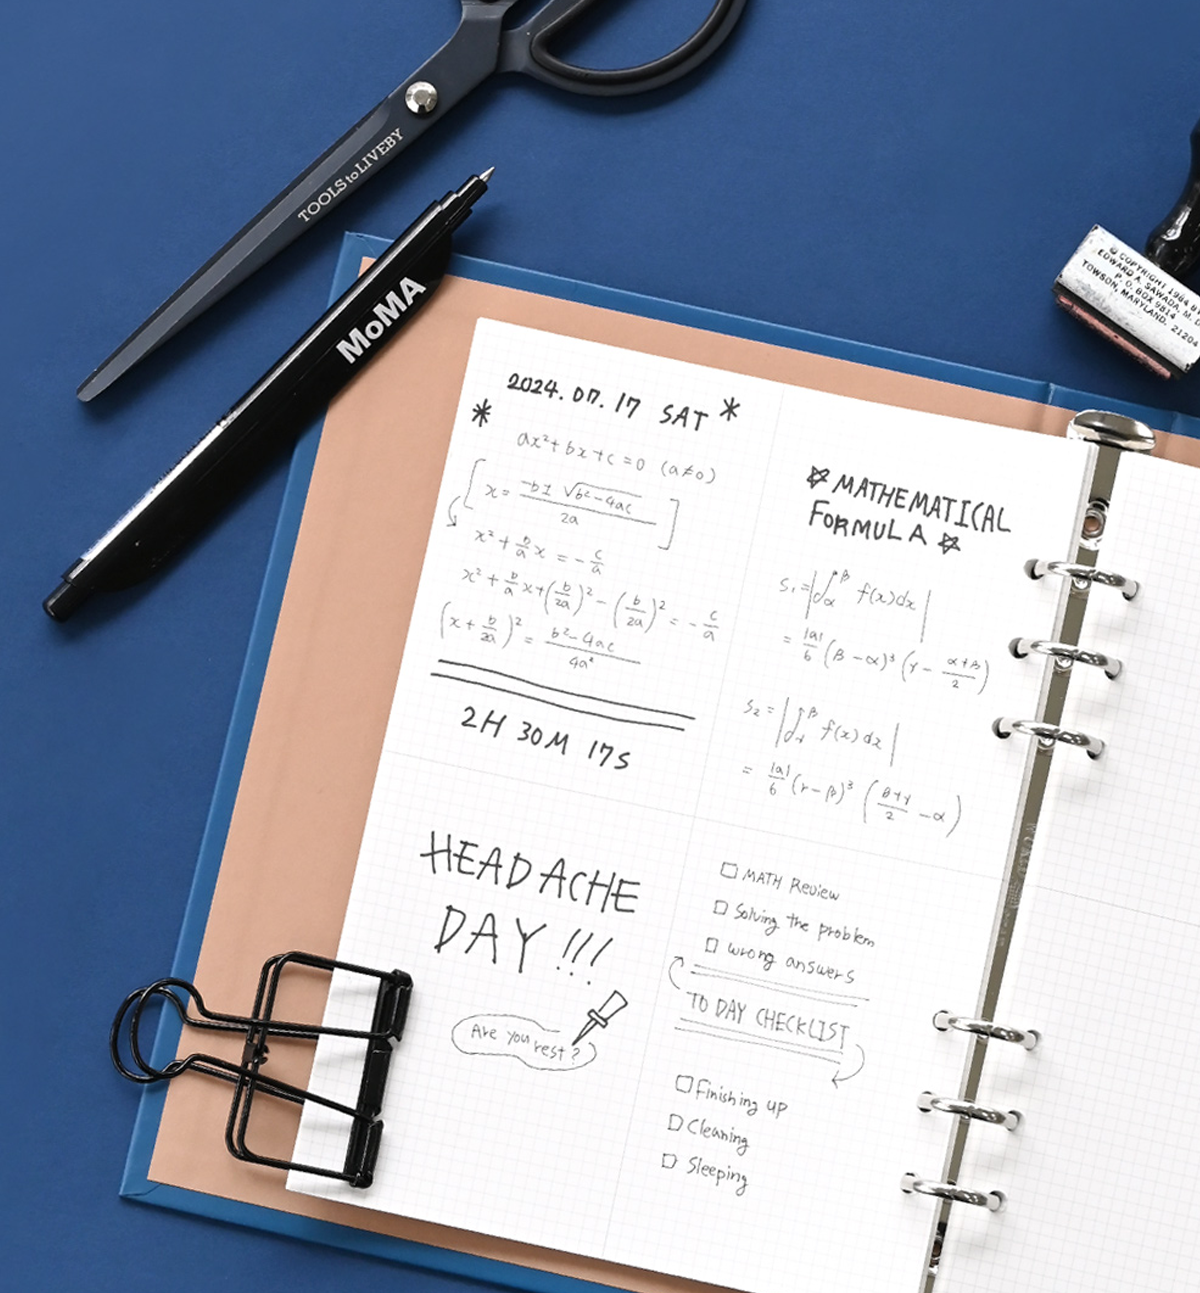 TOOLS to LIVEBY
MoMA
© COPYRIGHT 1984 BY
EDWARD A. SAWADA, M. D.
P. O. BOX 9814
TOWSON, MARYLAND. 21204
2024. 07. 17 SAT *
*
ax² + bx + c = 0 (a≠0)
[x = -b± √b²-4ac / 2a]
x² + b/a x = - c/a
x² + b/a x + (b/2a)² - (b/2a)² = - c/a
(x + b/2a)² = b²-4ac / 4a²
2H 30M 17S
HEADACHE
DAY!!!
Are you rest?
☆ MATHEMATICAL
FORMULA ☆
S₁ = |∫α^β f(x)dx|
= |a|/6 (β-α)³ (γ - α+β/2)
S₂ = |∫γ^β f(x)dx|
= |a|/6 (γ-β)³ (β+γ/2 - α)
□ MATH Review
□ Solving the problem
□ wrong answers
TO DAY CHECKLIST
□ Finishing up
□ Cleaning
□ Sleeping